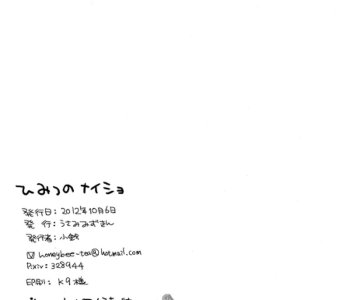 ひみつのナイショ
発行日：2012年10月6日
発 行：うさみみずきん
発行者：小鈴
✉ honeybee-tea@hotmail.com
Pixiv：328944
印刷：K9様